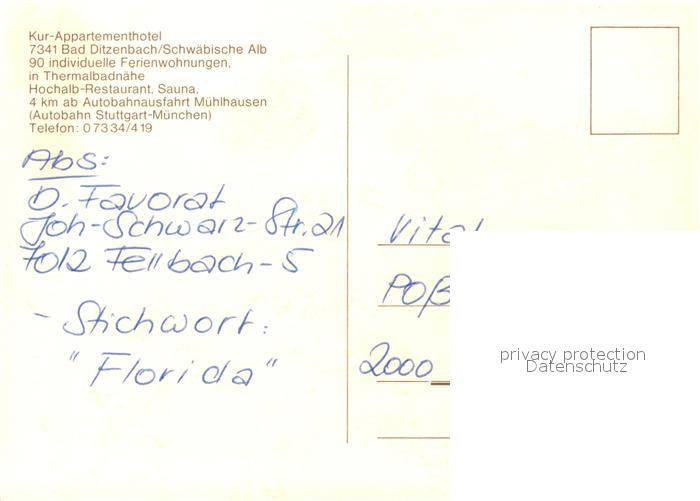 Kur-Appartementhotel
7341 Bad Ditzenbach/Schwäbische Alb
90 individuelle Ferienwohnungen,
in Thermalbadnähe
Hochalb-Restaurant, Sauna,
4 km ab Autobahnausfahrt Mühlhausen
(Autobahn Stuttgart-München)
Telefon: 07334/419
Abs:
D. Favorat
Joh-Schwarz-Str. 21
7012 Fellbach-5
- Stichwort:
"Florida"
Vital
POß
2000
privacy protection
Datenschutz